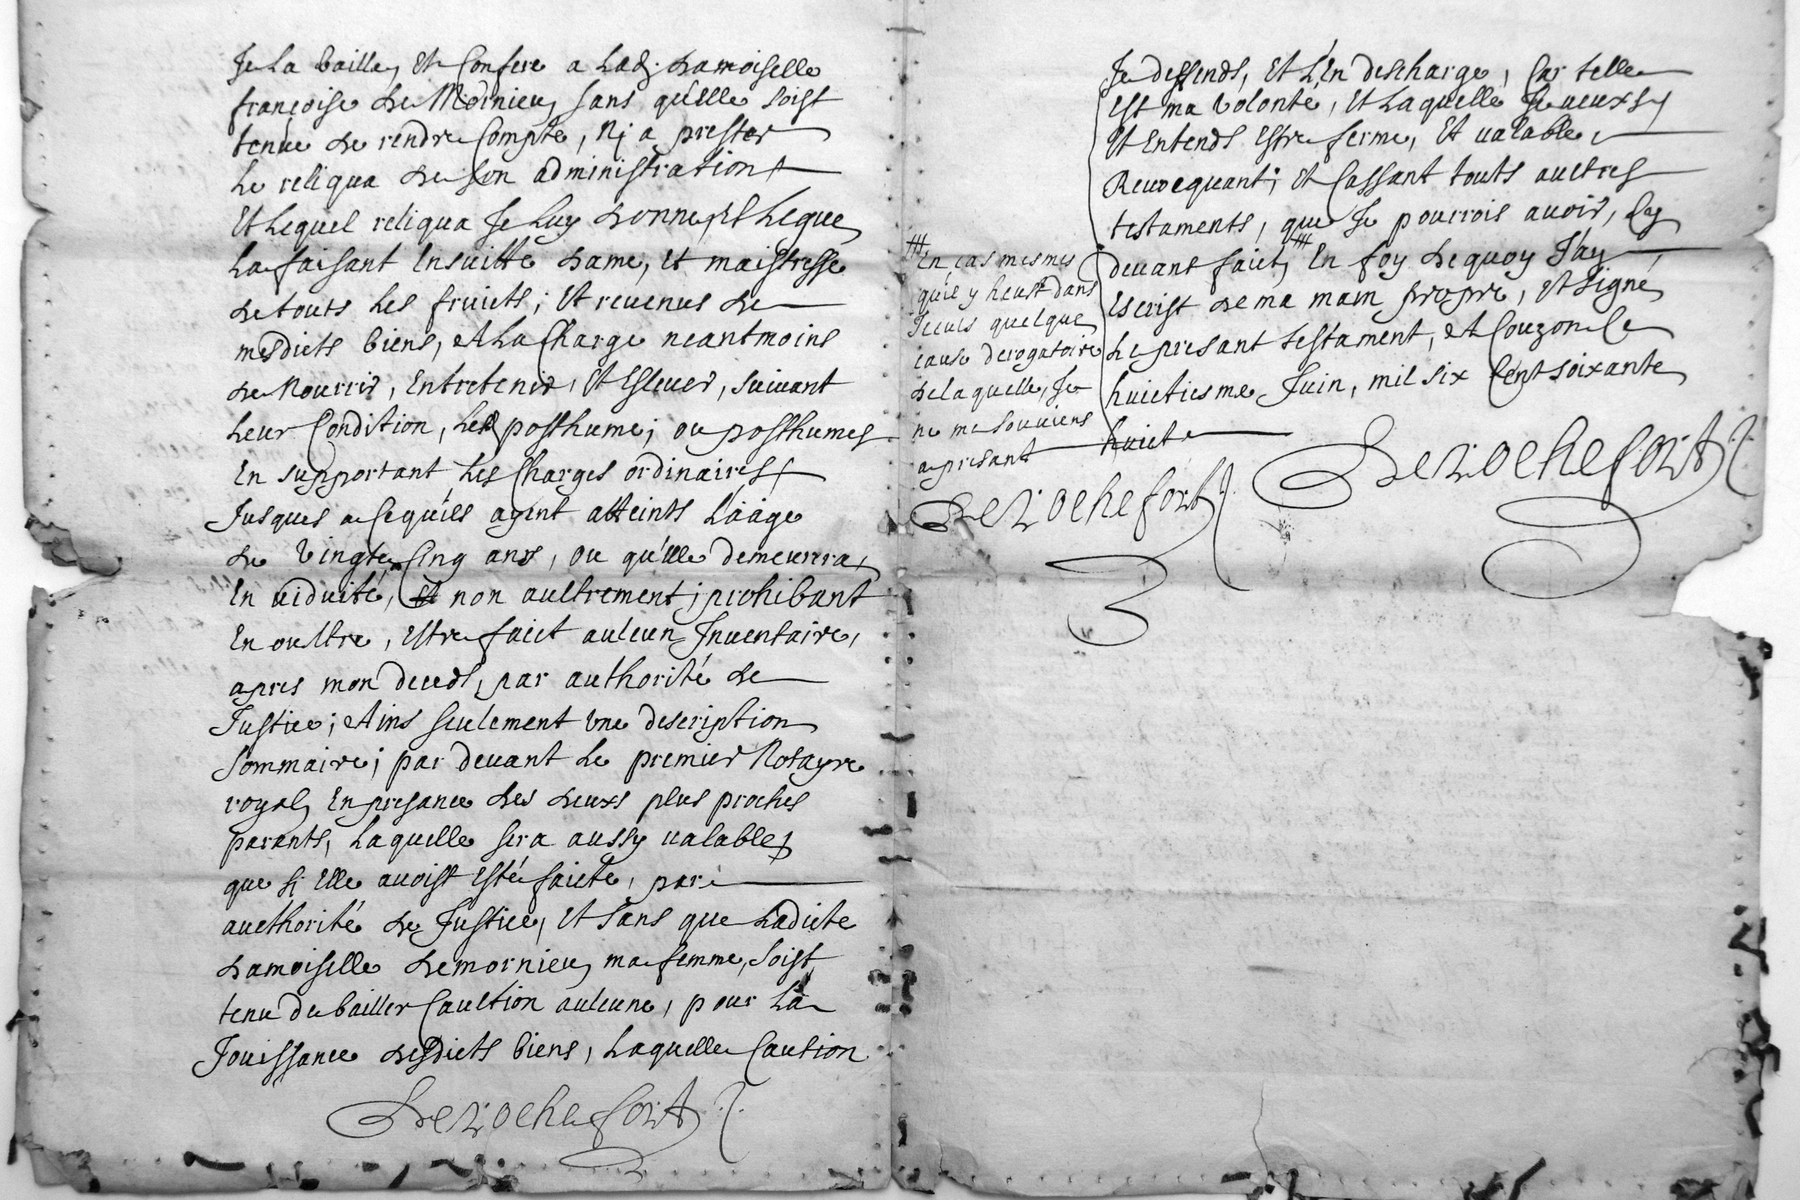 Je La baille, Et Confere a Lad. damoiselle
françoise de Mornieu, sans qu'elle soist
tenue de rendre Compte, Nj a prester
Le reliqua de son administration
Et Lequel reliqua Je Luy donne, Et Legue
La faisant Ensuitte dame, Et maistresse
de touts Les fruicts; Et revenus de
mesdicts biens, A La Charge neantmoins
de Nourrir, Entretenir, Et Eslever, suivant
Leur Condition, Led posthume; ou posthumes
En supportant Les Charges ordinaires
Jusques a Ce qu'ils ayent atteints L'aage
de Vingt Cinq ans, ou qu'elle demeurera
En viduité, Et non aultrement; prohibant
En oultre, Estre faict aulcun Inventaire,
apres mon deceds, par authorité de
Justice; Ains seulement Vne description
Sommaire; par devant Le premier Notayre
royal, En presance des deuxs plus proches
parants, Laquelle sera aussy valable
que si Elle avoist Esté faicte, par
aucthorité de Justice, Et sans que Ladicte
damoiselle de mornieu, ma femme, soist
tenu de bailler Caultion aulcune, pour La
Jouissance desdicts biens, Laquelle Caution
De Rochefort
Je deffends, Et L'En descharge, Car telle
Est ma Volonté, Et Laquelle Je veuxs
Et Entends Estre ferme, Et valable,
Revocquant; Et Cassant touts aultres
testaments, que Je pourrois avoir, Cy
devant faict, # En foy de quoy J'ay
Escrist de ma main propre, Et Signé
Le presant testament, A Couzon Ce
huictiesme Juin, mil six Cent soixante
huict
De Rochefort
# En cas mesmes
qu'il y heust dans
Iceuls quelque
cause derogatoire
de laquelle, Je
ne me souviens
a presant
De Rochefort